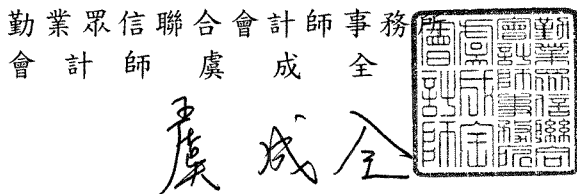 勤業眾信聯合會計師事務所
會計師 虞成全
虞成全
勤業眾信聯合
會計師事務所
虞成全
會計師